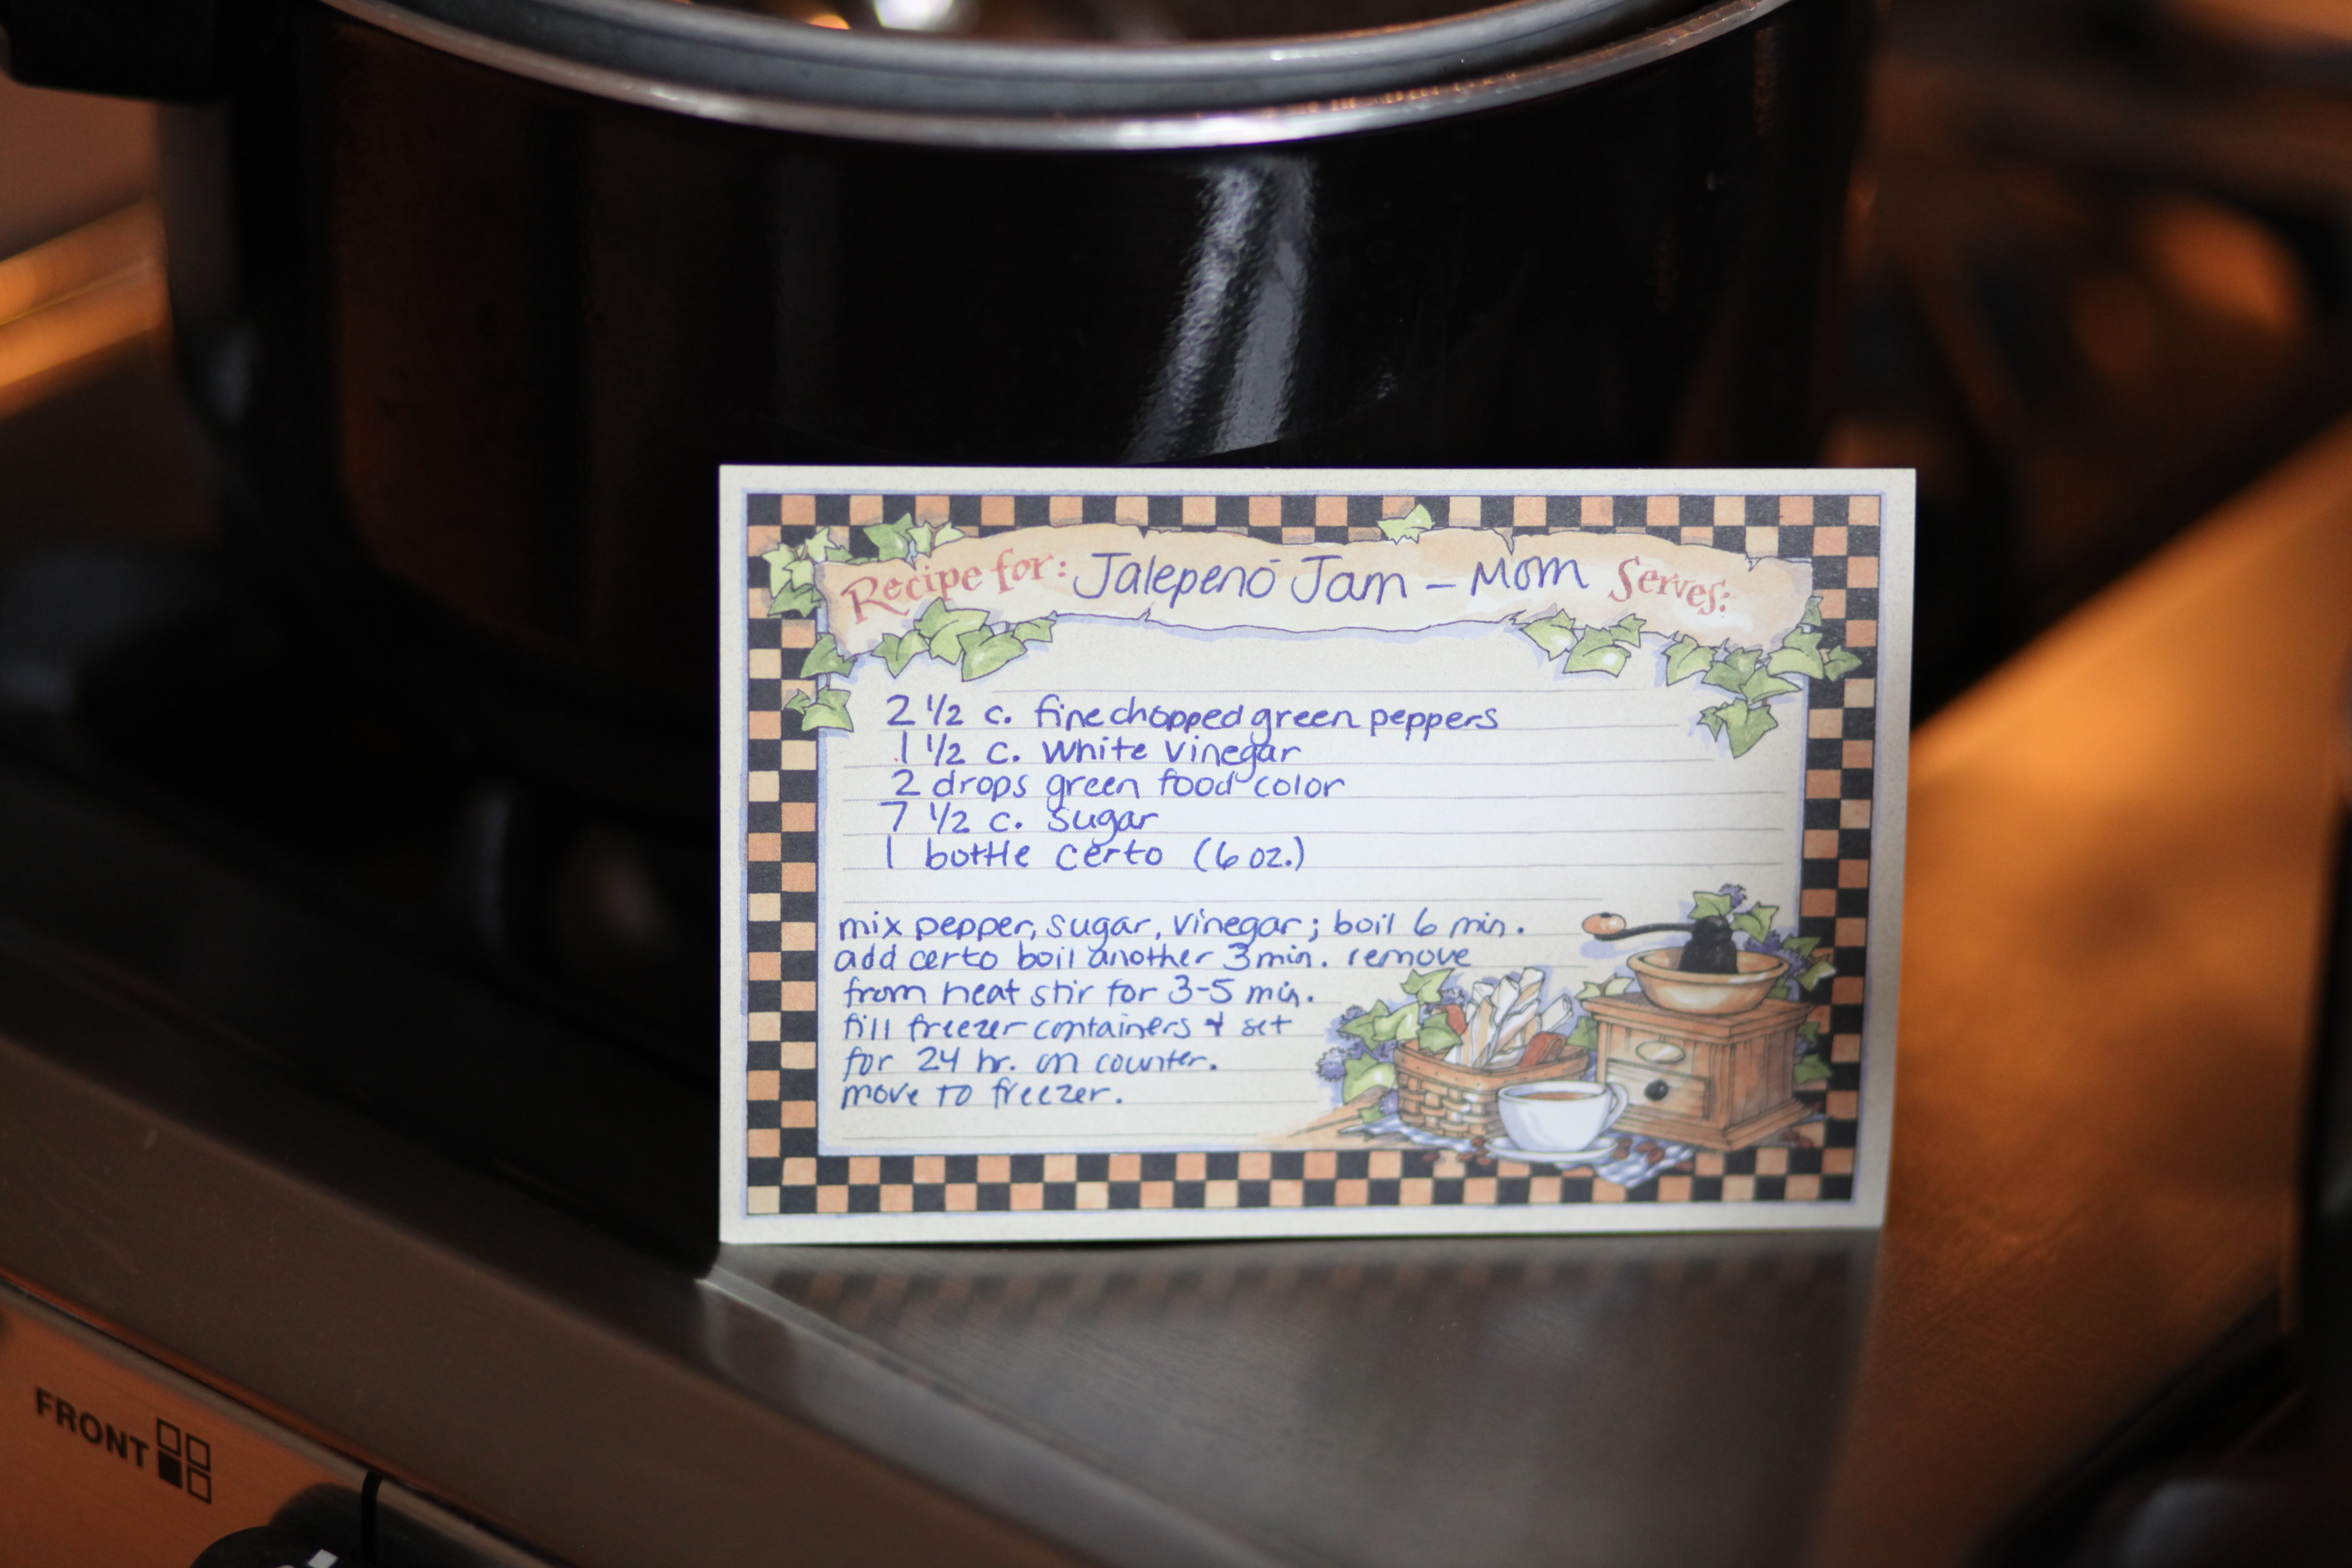 Recipe for: Jalepenõ Jam - Mom Serves:
2 1/2 c. fine chopped green peppers
1 1/2 c. white vinegar
2 drops green food color
7 1/2 c. sugar
1 bottle certo (6 oz.)
mix pepper, sugar, vinegar; boil 6 min.
add certo boil another 3 min. remove
from heat stir for 3-5 min.
fill freezer containers + set
for 24 hr. on counter.
move to freezer.
FRONT